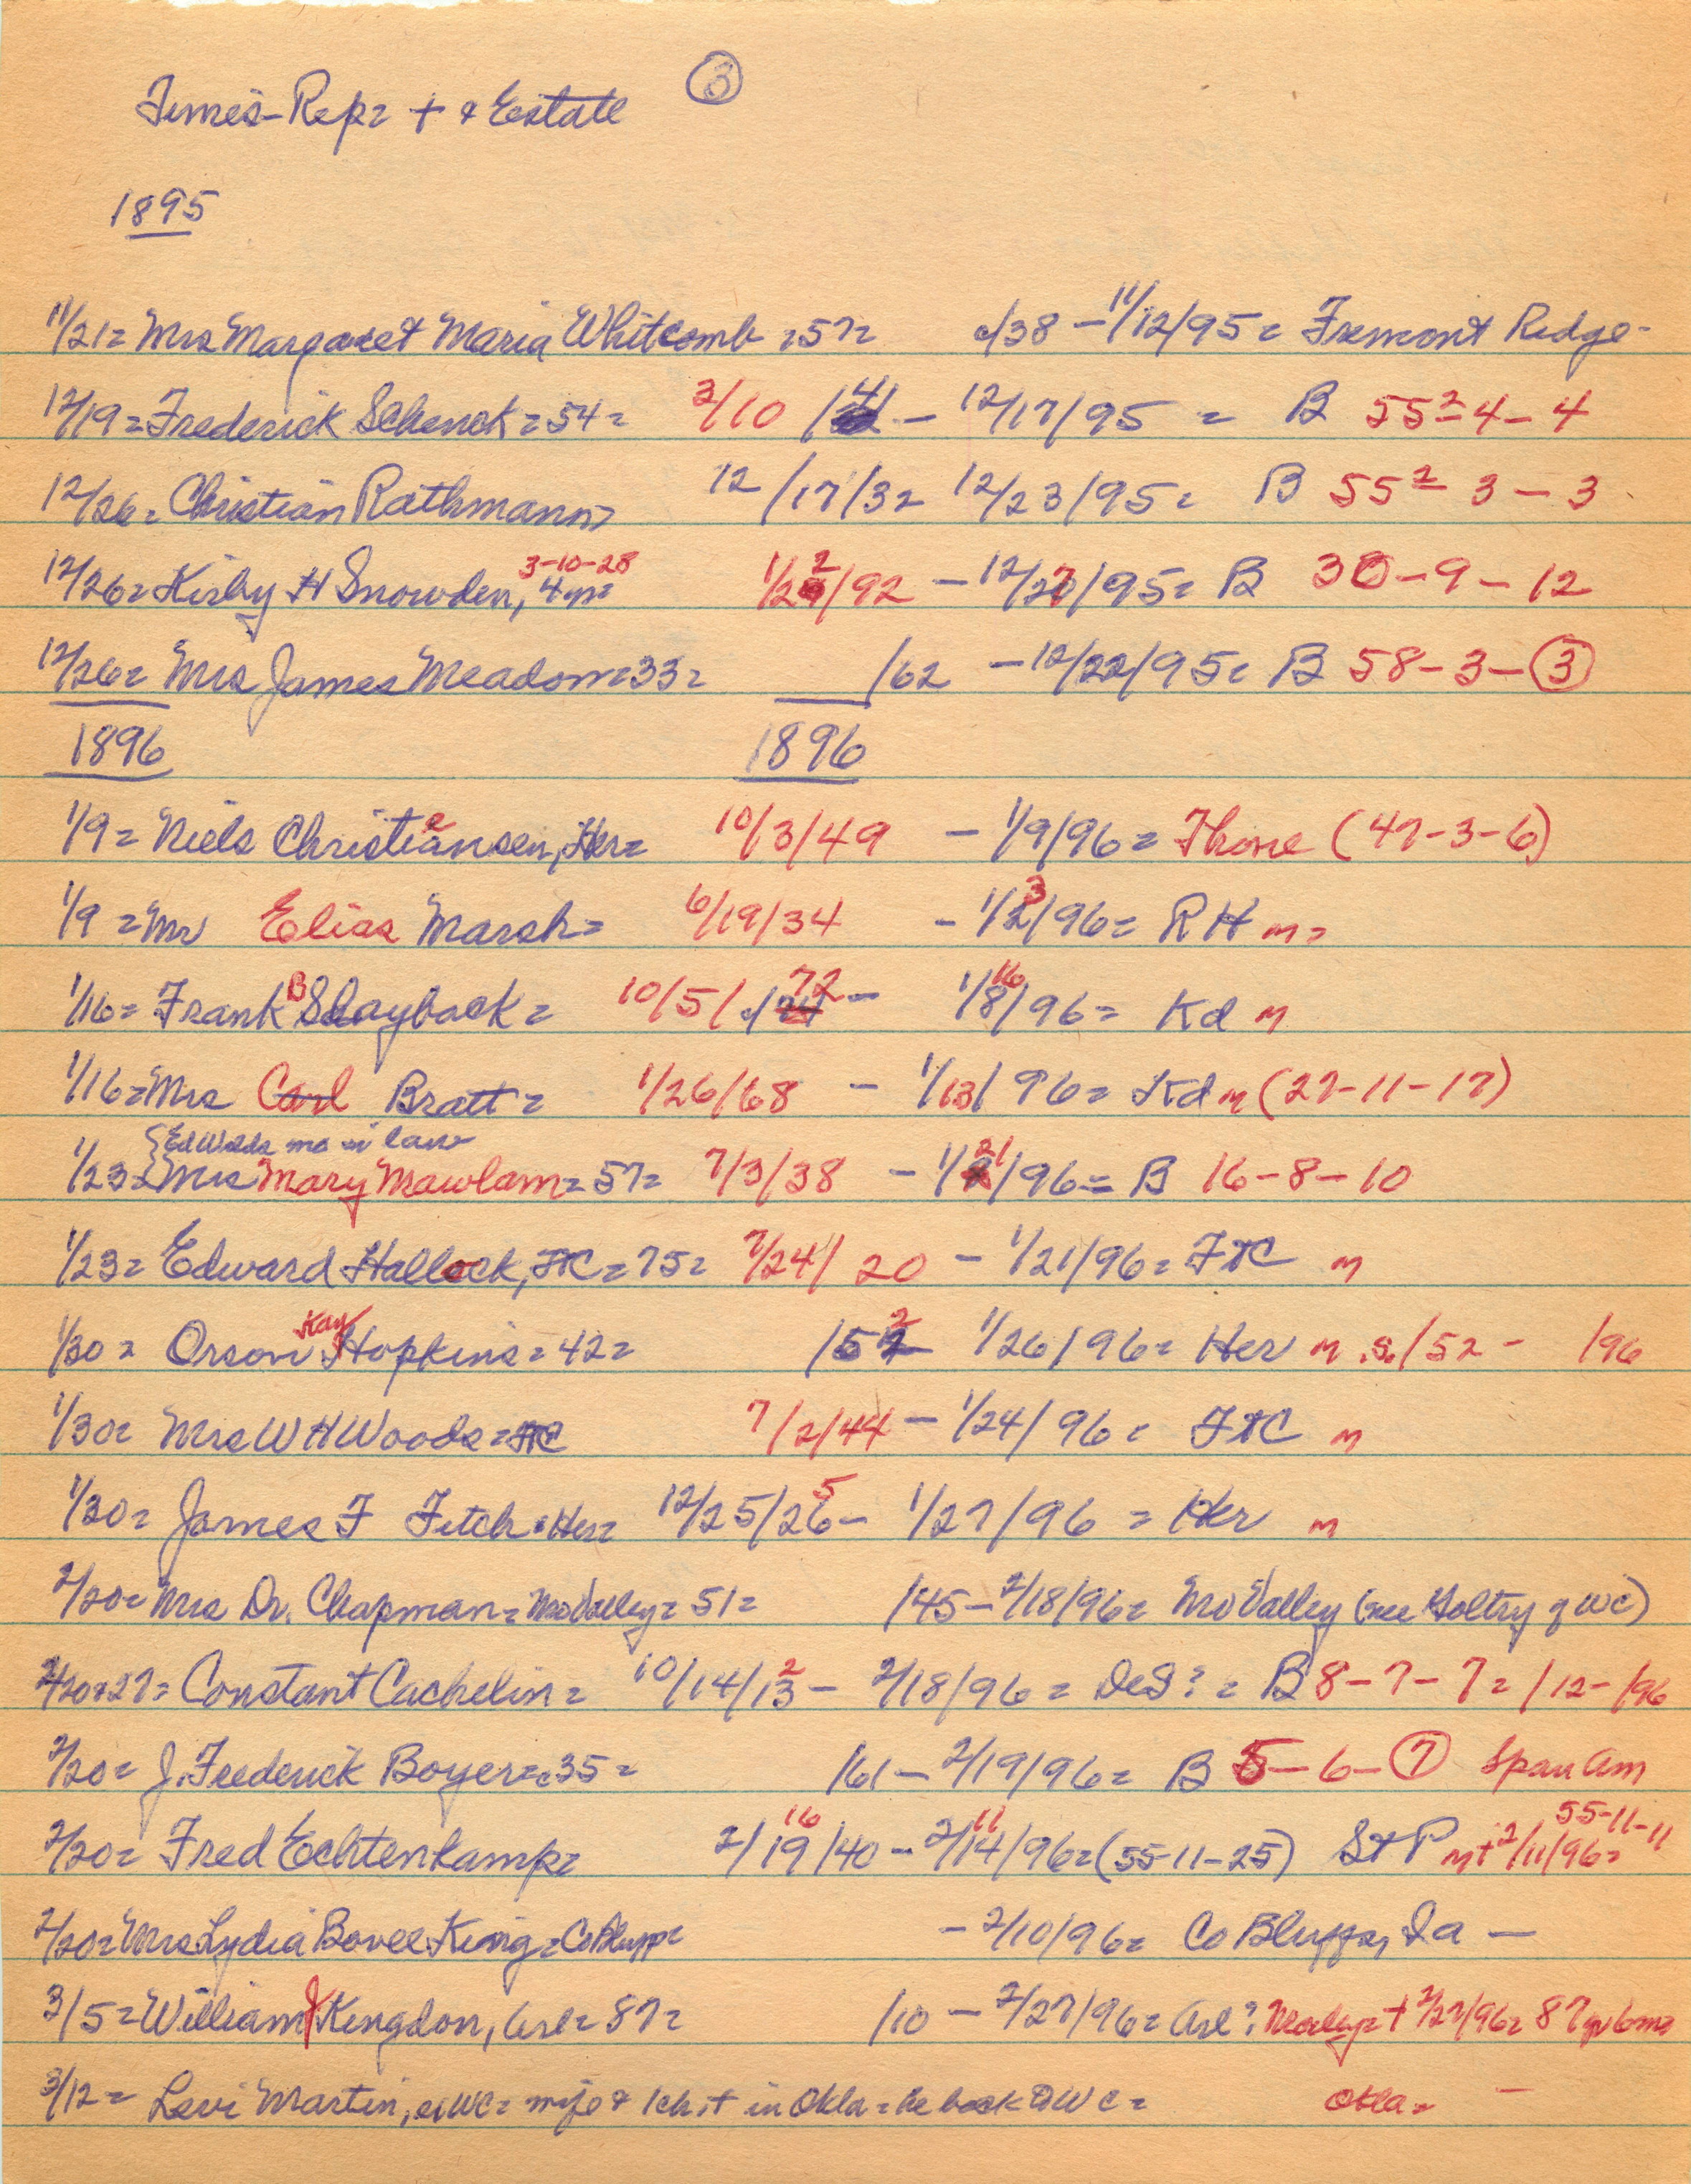 ③
Times-Rep= + & Estate
1895
11/21= Mrs Margaret Maria Whitcomb =57= c/38 - 11/12/95= Fremont Ridge-
12/19= Frederick Schenck=54= 2/10 /41 - 12/17/95 = B 55²-4-4
12/26= Christian Rathmann= 12/17/32 12/23/95= B 55²-3-3
12/26= Kirby H Snowden, 4m= 3-10-28 1/22/92 - 12/27/95= B 30-9-12
12/26= Mrs James Meadom=33= /62 - 12/22/95= B 58-3-③
1896 1896
1/9= Niels Christiansen, Her= 10/3/49 - 1/9/96= Thone (47-3-6)
1/9=Mr Elias Marsh= 6/19/34 - 1/3/96= RH m=
1/16= Frank B Slayback= 10/5/72 - 1/16/96= Kd m
1/16=Mrs Carl Bratt= 1/26/68 - 1/13/96= Kd m (27-11-17)
{Ed Wilds mo in law
1/23=Mrs Mary Mawlam=57= 7/3/38 - 1/21/96= B 16-8-10
1/23= Edward Hallock, FtC=75= 7/24/20 - 1/21/96= FtC m
1/30= Orson Kay Hopkins=42= /52 1/26/96= Her m .s./52 - /96
1/30= Mrs W H Woods=FtC 7/2/44 - 1/24/96= FtC m
1/30= James F Fitch=Her= 12/25/265 - 1/27/96= Her m
2/20=Mrs Dr. Chapman=Mo Valley=51= /45 - 2/18/96= Mo Valley (nee Goltry of WC)
2/20+27= Constant Cachelin= 10/14/132 - 2/18/96= DeS?= B 8-7-7= /12-/96
2/20= J. Frederick Boyer=c35= /61 - 2/19/96= B 5-6-⑦ Span Am
2/20= Fred Echtenkamp= 2/19 16/40 - 2/14 11/96=(55-11-25) St P m+2/11/96= 55-11-11
2/20=Mrs Lydia Bovee King=Co Bluff= - 2/10/96= Co Bluffs, Ia -
3/5=William J Kingdon, Arl=87= /10 - 2/27/96= Arl? + 2/27/96= 87y 6m=
3/12= Levi Martin, exWC= wife & 1ch + in Okla=he back to WC= Okla= -